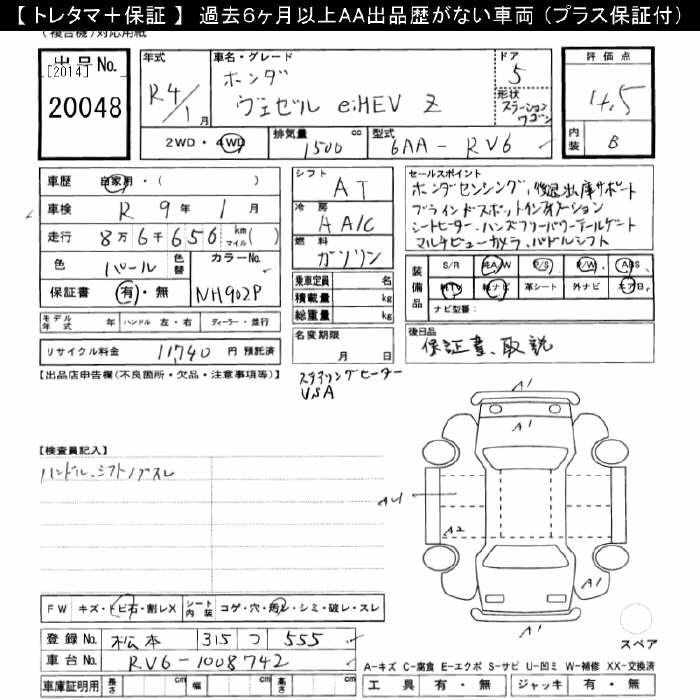 【 トレタマ＋保証 】 過去6ヶ月以上AA出品歴がない車両（プラス保証付）
(複合機)対応用紙
出品No.
[2014]
20048
年式
R4/1月
車名・グレード
ホンダ
ヴェゼル e:HEV Z
ドア
5
形状
ステーションワゴン
評価点
4.5
内装
B
2WD・4WD
排気量
1500 cc
型式
6AA-RV6
車歴 自家用・( )
車検 R 9年 1月
走行 8万6千656 km マイル( )
色 パール
色替
カラーNo.
NH902P
保証書 有・無
モデル年式 年 ハンドル 左・右 ディーラー・並行
リサイクル料金 11,740 円 預託済
シフト
AT
冷房
AAC
燃料
ガソリン
乗車定員 名
積載量 kg
総重量 kg
名変期限
月 日
セールスポイント
ホンダセンシング、後退出庫サポート
ブラインドスポットインフォメーション
シートヒーター、ハンズフリーパワーテールゲート
マルチビューカメラ、パドルシフト
装備品
S/R 純A/W P/S P/W ABS
純TV 純ナビ 革シート 外ナビ エアB
ナビ型番:
後日品
保証書、取説
【出品店申告欄(不良箇所・欠品・注意事項等)】
ステアリングヒーター
VSA
【検査員記入】
ハンドル、シフトノブスレ
A1
A1
A1
A4
A2
A1
A1
FW キズ・トビ石・割レX
シート内装 コゲ・穴・汚レ・シミ・破レ・スレ
登録No. 松本 315 つ 555
車台No. RV6-1008742
車庫証明用 長さ cm 幅 cm 高さ cm
スペア
A-キズ C-腐食 E-エクボ S-サビ U-凹ミ W-補修 XX-交換済
工具 有・無 ジャッキ 有・無